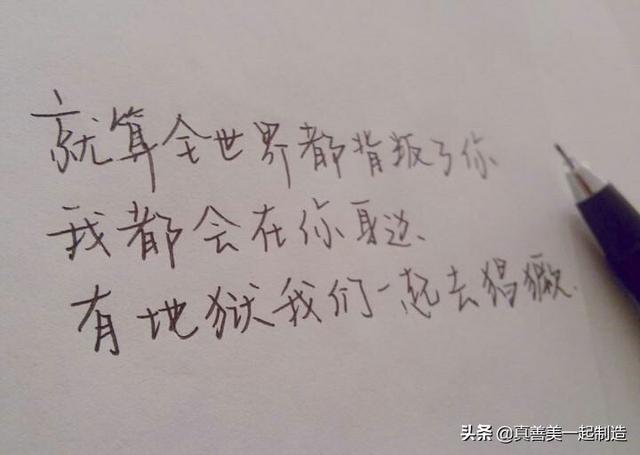 就算全世界都背叛了你
我都会在你身边、
有地狱我们一起去猖獗.
头条 @真善美一起制造